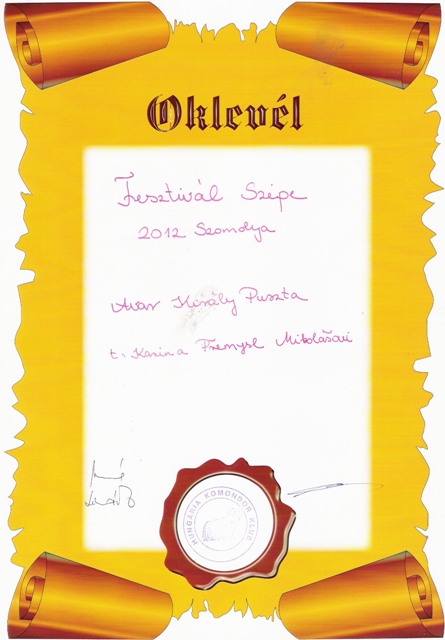 Oklevél
Fesztivál Szépe
2012 Szomolya
Avar Király Puszta
t.: Karin a Přemysl Mikolášovi
HUNGÁRIA KOMONDOR KLUB